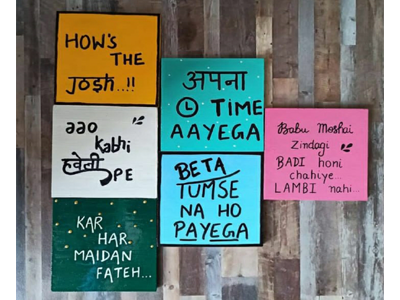 HOW'S
THE
JOSH...!!
aao
Kabhi
हवेली
PE
KAR
HAR
MAIDAN
FATEH...
अपना
TIME
AAYEGA
BETA
TUMSE
NA HO
PAYEGA
Babu Moshai
Zindagi
BADI honi
chahiye...
LAMBI nahi...